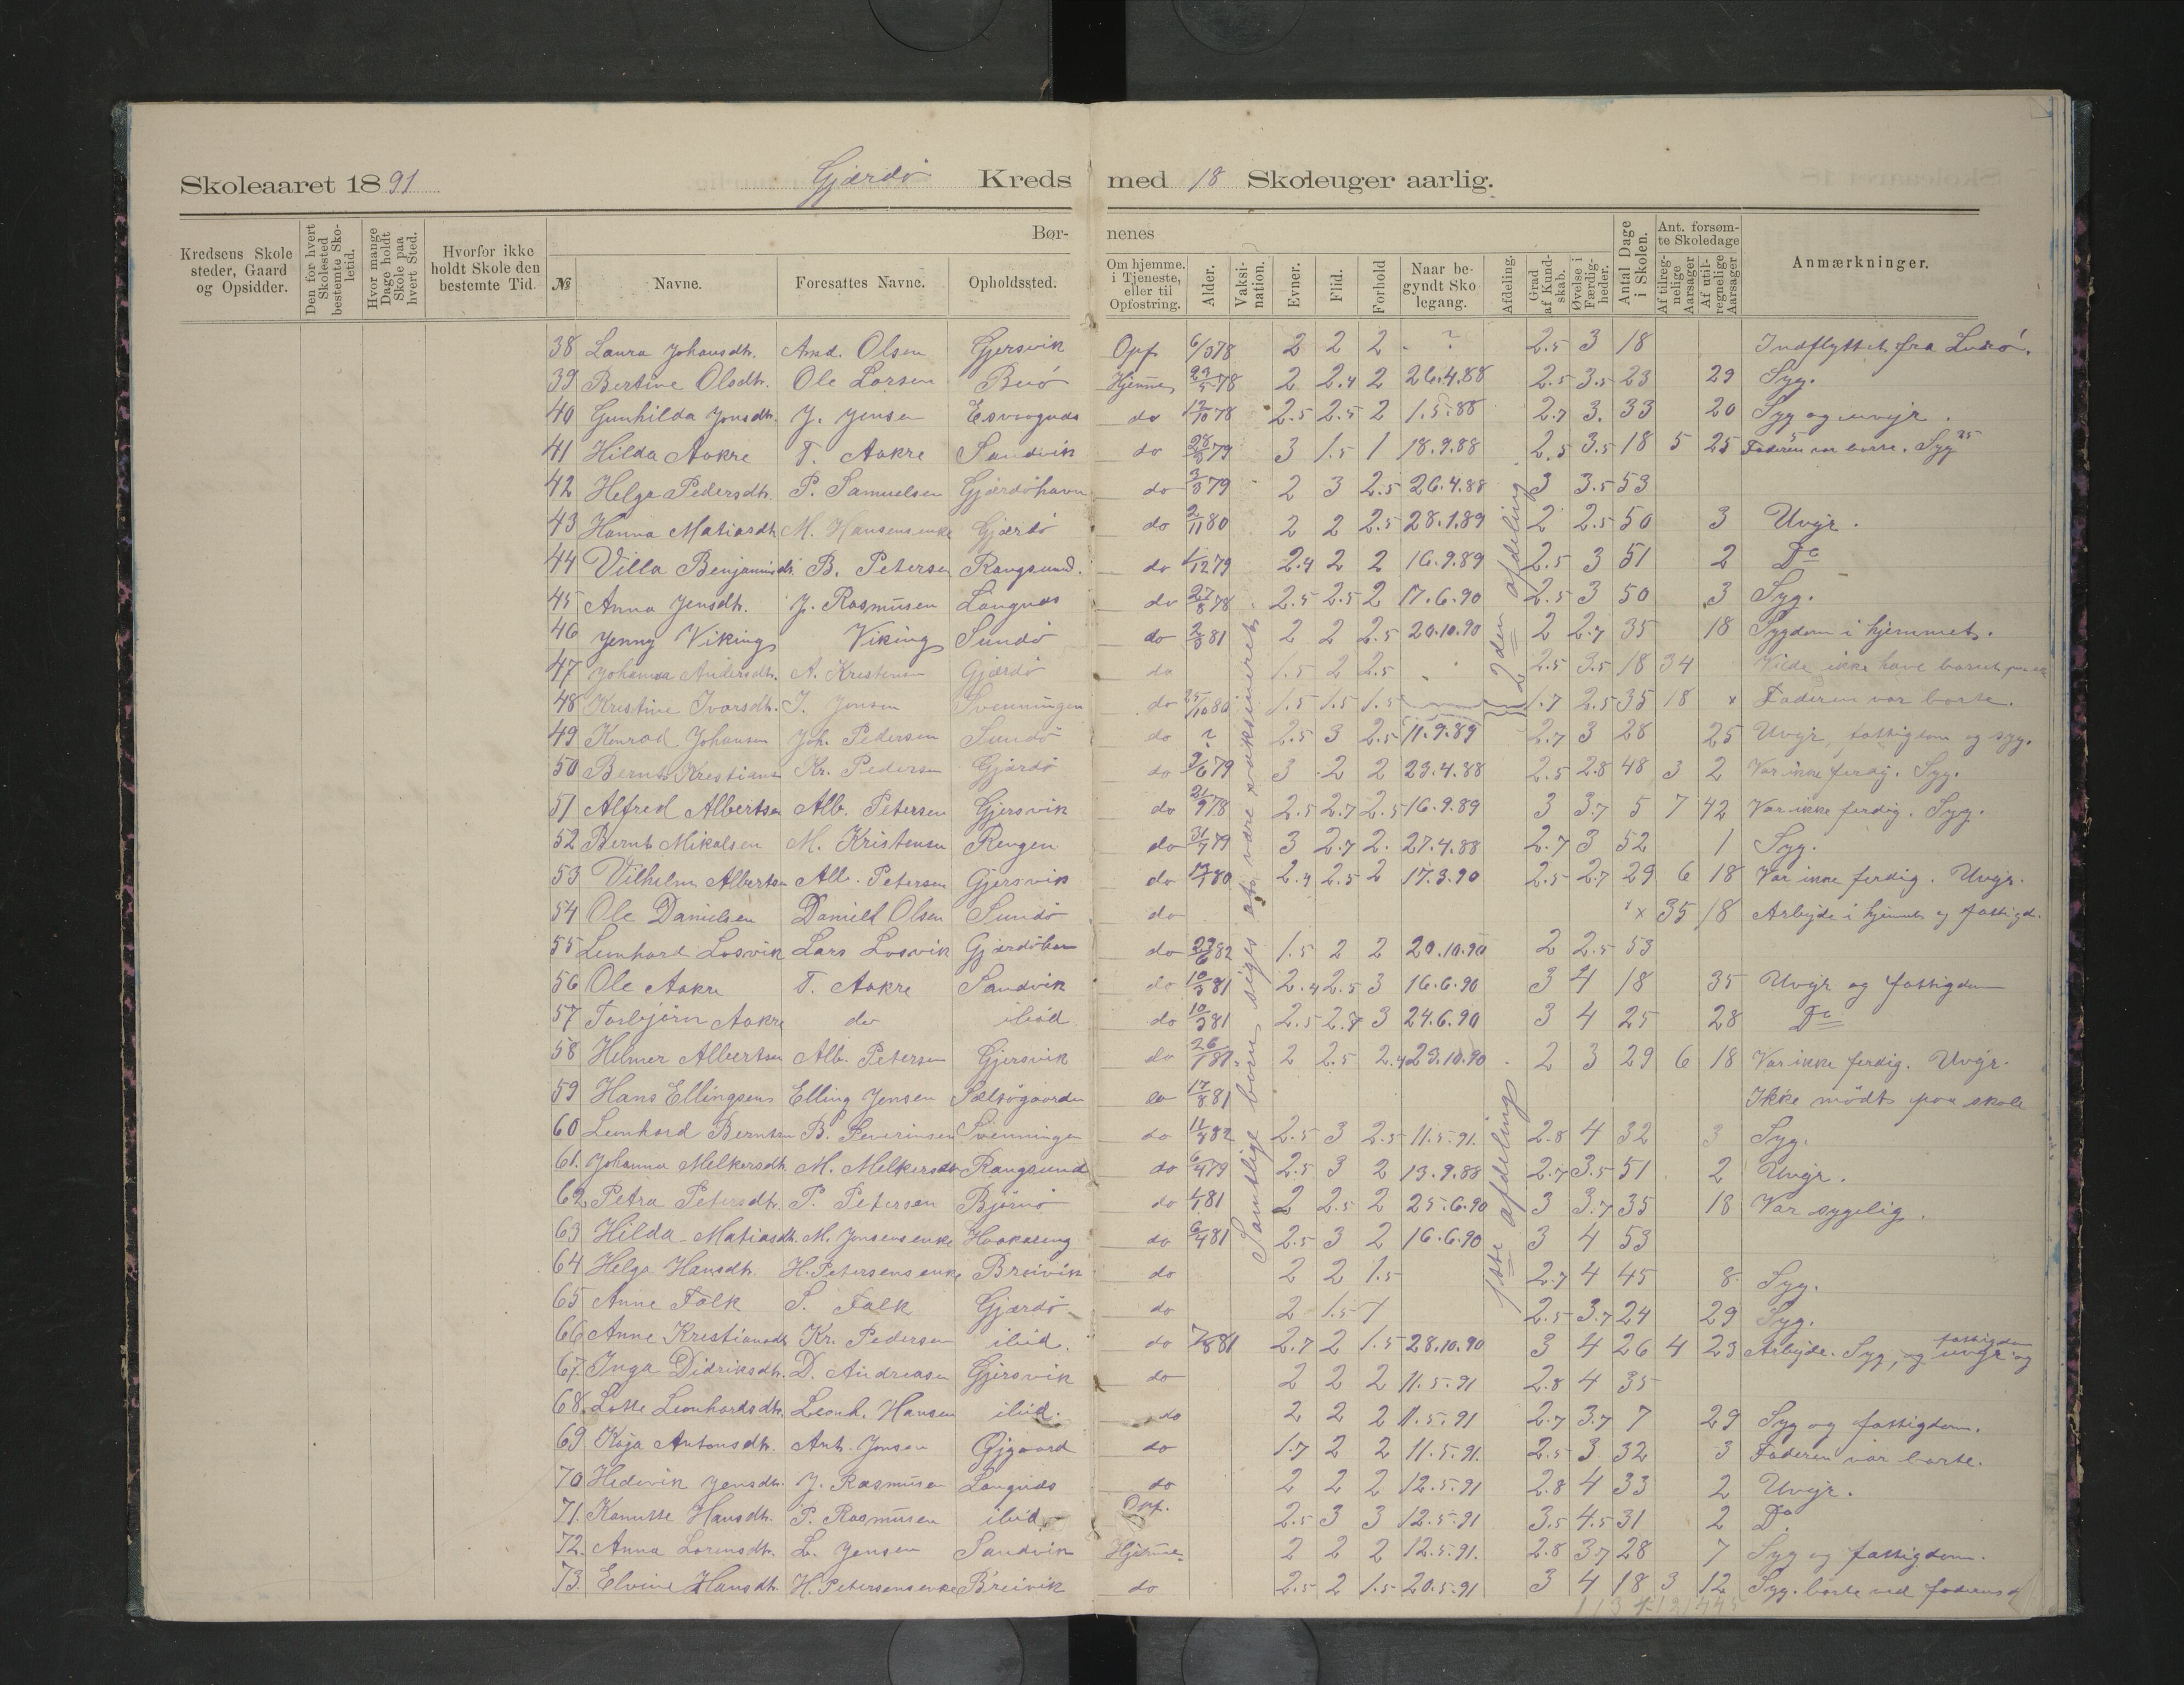 Skoleaaret 1891 Gjærdø Kreds med 18 Skoleuger aarlig.
Kredsens Skolesteder, Gaard og Opsidder. Den for hvert Skolested bestemte Skoletid. Hvor mange Dage holdt Skole paa hvert Sted. Hvorfor ikke holdt Skole den bestemte Tid. Børnenes
№ Navne. Foresattes Navne. Opholdssted. Om hjemme. i Tjeneste, eller til Opfostring. Alder. Vaksination. Evner. Flid. Forhold Naar begyndt Skolegang. Afdeling. Grad af Kundskab. Øvelse i Færdigheder. Antal Dage i Skolen. Ant. forsømte Skoledage Af tilregnelige Aarsager Af utilregnelige Aarsager Anmærkninger.
38 Laura Johansdtr. Amd. Olsen Gjersvik Opf. 6/3 78 2 2 2 ? 2.5 3 18 Indflyttet fra Lurø.
39 Bertine Olsdtr. Ole Larsen Buø Hjemme 23/5 78 2 2.4 2 26.4.88 2.5 3.5 23 29 Syg.
40 Gunhilda Jensdtr. J. Jensen do 12/10 78 2.5 2.5 2 1.5.88 2.7 3. 33 20 Syg og uvejr.
41 Hilda Aakre T. Aakre Sandvik do 28/3 79 3 1.5 1 18.9.88 2.5 3.5 18 5 25 Faderen var borte. 5 Syg 25
42 Helga Pedersdtr. P. Samuelsen Gjærdøhavn do 3/3 79 2 3 2.5 26.4.88 3 3.5 53
43 Hanna Matiasdtr. M. Hansens enke Gjærdø do 2/11 80 2 2 2.5 28.1.89 2 2.5 50 3 Uvejr.
44 Villa Benjaminsdtr. B. Petersen Rangsund. do 1/12 79 2.4 2 2 16.9.89 2.5 3 51 2 Do
45 Anna Jensdtr. J. Rasmusen Langnes do 27/8 78 2.5 2.5 2 17.6.90 2.5 3 50 3 Syg.
46 Jenny Viking Viking Sundø do 2/3 81 2 2 2.5 20.10.90 2 2.7 35 18 Sygdom i hjemmet.
47 Johanna Andersdtr. A. Kristensen Gjærdø do 1.5 2 2.5 2.5 3.5 18 34 Vilde ikke have barnet
48 Kristine Ivarsdtr. I. Jensen Svenningen do 25/10 80 1.5 1.5 1.5 1.7 2.5 35 18 x Faderen var borte.
49 Konrad Johansen Joh. Pedersen Sundø do ? 2.5 3 2.5 11.9.89 2.7 3 28 25 Uvejr, fattigdom og syg.
50 Bernt Kristiansen Kr. Pedersen Gjærdø do 3/6 79 3 2 2 23.4.88 2.5 2.8 48 3 2 Var ikke ferdig. Syg.
51 Alfred Albertsen Alb. Petersen Gjersvik do 21/9 78 2.5 2.7 2.5 16.9.89 3 3.7 5 7 42 Var ikke ferdig. Syg.
52 Bernt Mikalsen M. Kristensen Rengen do 31/7 79 3 2.7 2. 27.4.88 2.7 3 52 1 Syg.
53 Vilhelm Albertsen Alb. Petersen Gjersvik do 80 2.4 2.5 2 17.3.90 2.5 2.7 29 6 18 Var ikke ferdig. Uvejr.
54 Ole Danielsen Daniel Olsen Sundø do x 35 18 Arbejde i hjemmet og fattigd.
55 Leonhard Losvik Lars Losvik Gjærdøhavn do 23/6 82 1.5 2 2 20.10.90 2 2.5 53
56 Ole Aakre T. Aakre Sandvik do 10/3 81 2.4 2.5 3 16.6.90 3 4 18 35 Uvejr og fattigdom
57 Torbjørn Aakre do ibid do 10/3 81 2.5 2.7 3 24.6.90 3 4 25 28 Do
58 Helmer Albertsen Alb. Petersen Gjersvik do 26/1 81 2 2.5 2.4 23.10.90 2 3 29 6 18 Var ikke ferdig. Uvejr.
59 Hans Ellingsen Elling Jensen Selsøgaarden do 17/8 81 Ikke mødt paa skole
60 Leonhard Berntsen B. Severinsen Svenningen do 11/3 82 2.5 3 2.5 11.5.91. 2.8 4 32 3 Syg.
61. Johanna Melkersdtr. M. Melkersen Rangsund do 6/4 79 2.5 3 2 13.9.88 2.7 3.5 51 2 Uvejr.
62 Petra Petersdtr. P. Petersen Bjørnø do 81 2 2.5 2 25.6.90 3 3.7 35 18 Var sygelig.
63 Hilda Matiasdtr. M. Jensens enke Haakaeng do 6/4 81 2.5 3 2 16.6.90 3 4 53
64 Helga Hansdtr. H. Petersens enke Breivik do 2 2 1.5 2.7 4 45 8 Syg.
65 Anne Falk S. Falk Gjærdø do 2 1.5 1 2.5 3.7 24 29 Syg.
66 Anne Kristiansdtr. Kr. Pedersen ibid. do 7/8 81 2.7 2 1.5 28.10.90 3 4 26 4 23 Arbejde. Syg, og uvejr og fattigdom
67. Inga Didriksdtr. D. Andreasen Gjersvik do 2 2 2 11.5.91 2.8 4 35
68. Lotte Leonhardsdtr. Leonh. Hansen ibid. do 2 2 2 11.5.91 2.7 3.7 7 29 Syg og fattigdom.
69 Kaja Antonsdtr. Ant. Jensen Øjgaard do 1.7 2 2 11.5.91. 2.5 3 32 3 Faderen var borte.
70 Hedevik Jensdtr. J. Rasmusen Langnes do 2 2 2 12.5.91 2.8 4 33 2 Uvejr.
71. Kanutte Hansdtr. P. Rasmusen ibid. Opf. 2.5 3 3 12.5.91 3.5 4.5 31 2 Do.
72. Anna Lorensdtr. L. Jensen Sandvik Hjemme 2 2 2 12.5.91. 2.8 3.7 28 7 Syg og fattigdom.
73. Elvine Hansdtr. H. Petersens enke Breivik do 2.5 2 1.5 20.5.91 3 4 18 3 12 Syg. borte ved faderens
Samtlige børn siges at være vaksineret
2den afdeling
1ste afdeling